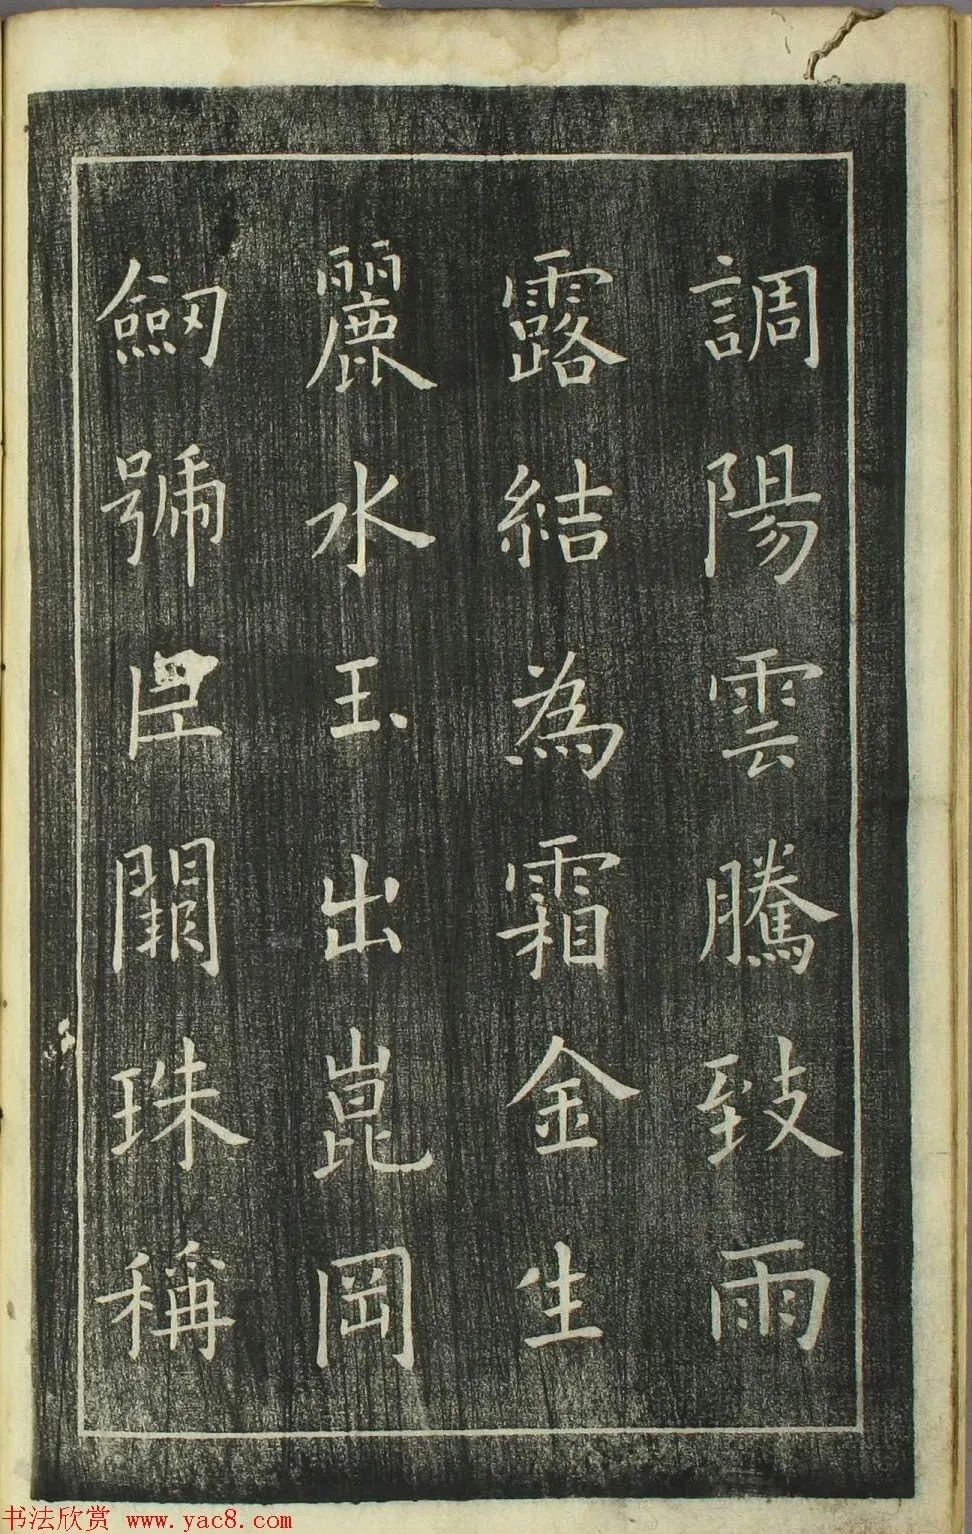 調陽雲騰致雨
露結為霜金生
麗水玉出崑岡
劒號巨闕珠稱
书法欣赏 www.yac8.com